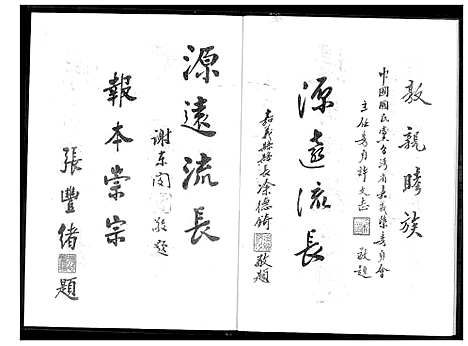 敦親睦族
中國國民黨台灣省嘉義縣委員會
主任委員許文志 敬題
源遠流長
嘉義縣縣長涂德錡 敬題
源遠流長
謝東閔 敬題
報本崇宗
張豐緒 題